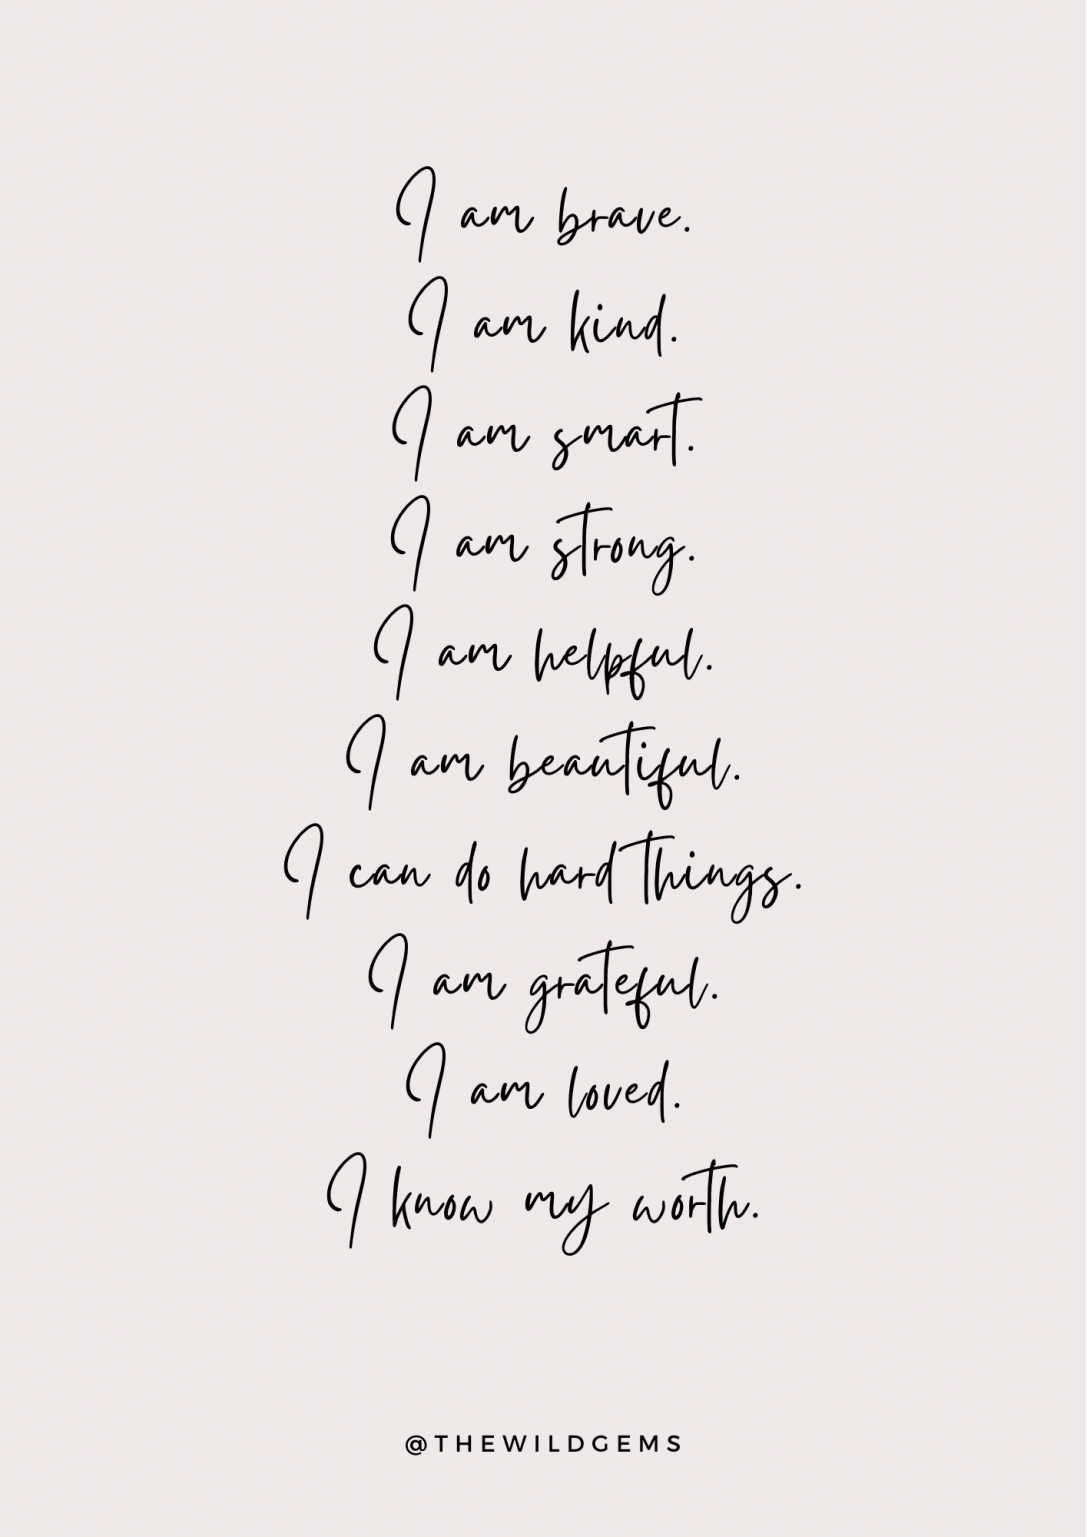 I am brave.
I am kind.
I am smart.
I am strong.
I am helpful.
I am beautiful.
I can do hard things.
I am grateful.
I am loved.
I know my worth.
@THEWILDGEMS